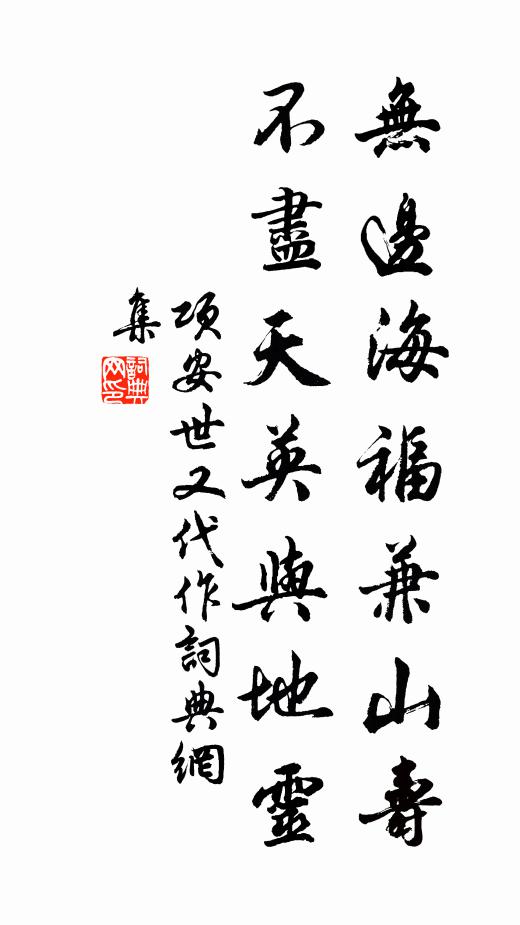 無邊海福兼山壽
不盡天英與地靈
項安世又代作詞典網
集
詞典
网印